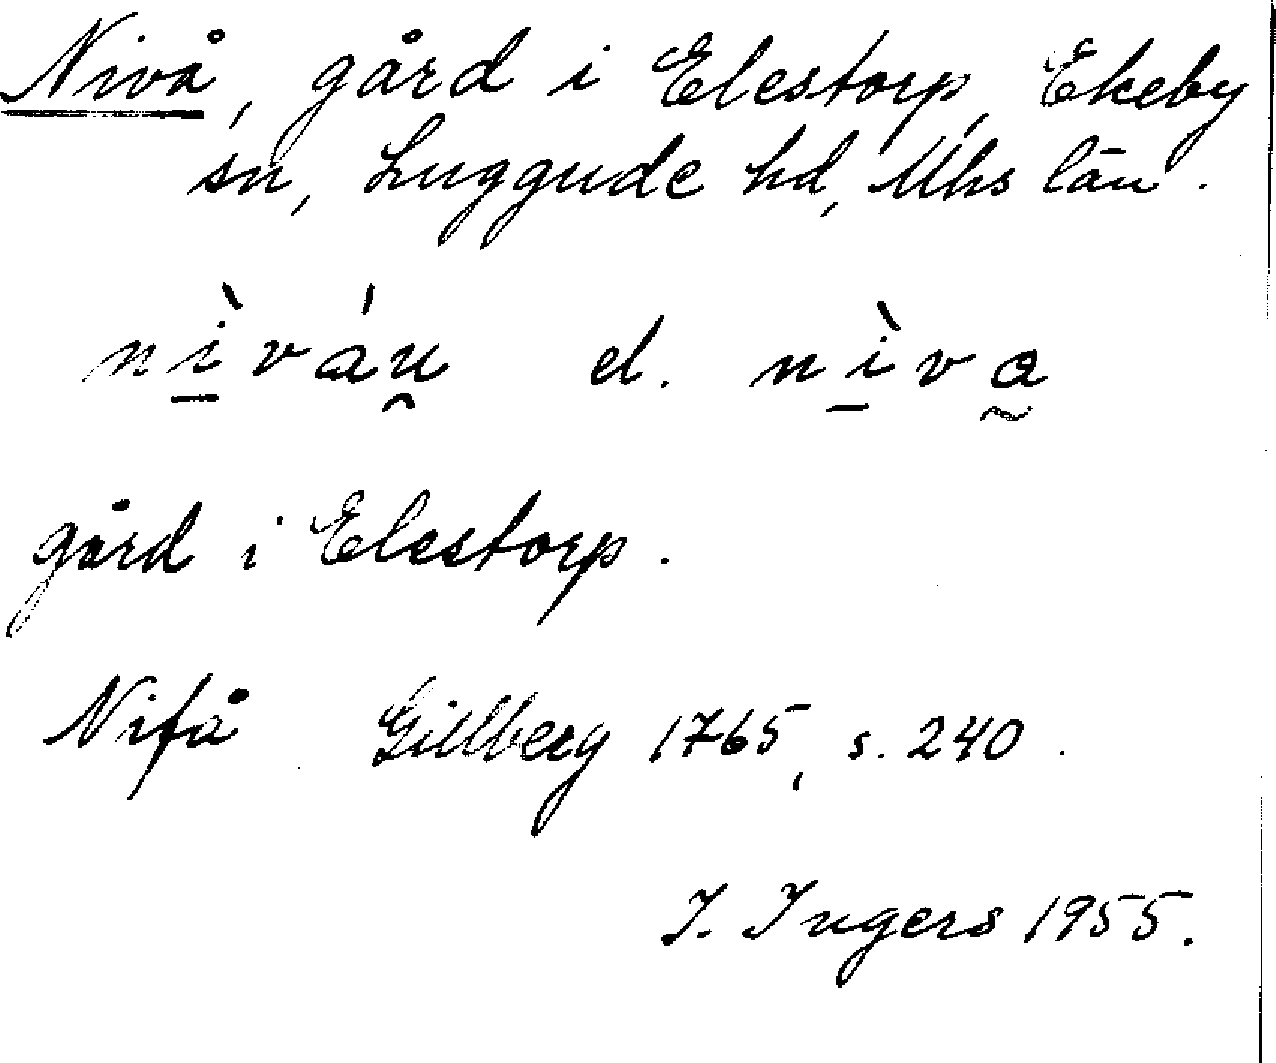 Nivå, gård i Elestorp, Ekeby
sn, Luggude hd, Mhs län.
nì̱váu̯ el. nì̱va̰
gård i Elestorp.
Nifå Gillberg 1765, s. 240.
I. Ingers 1955.